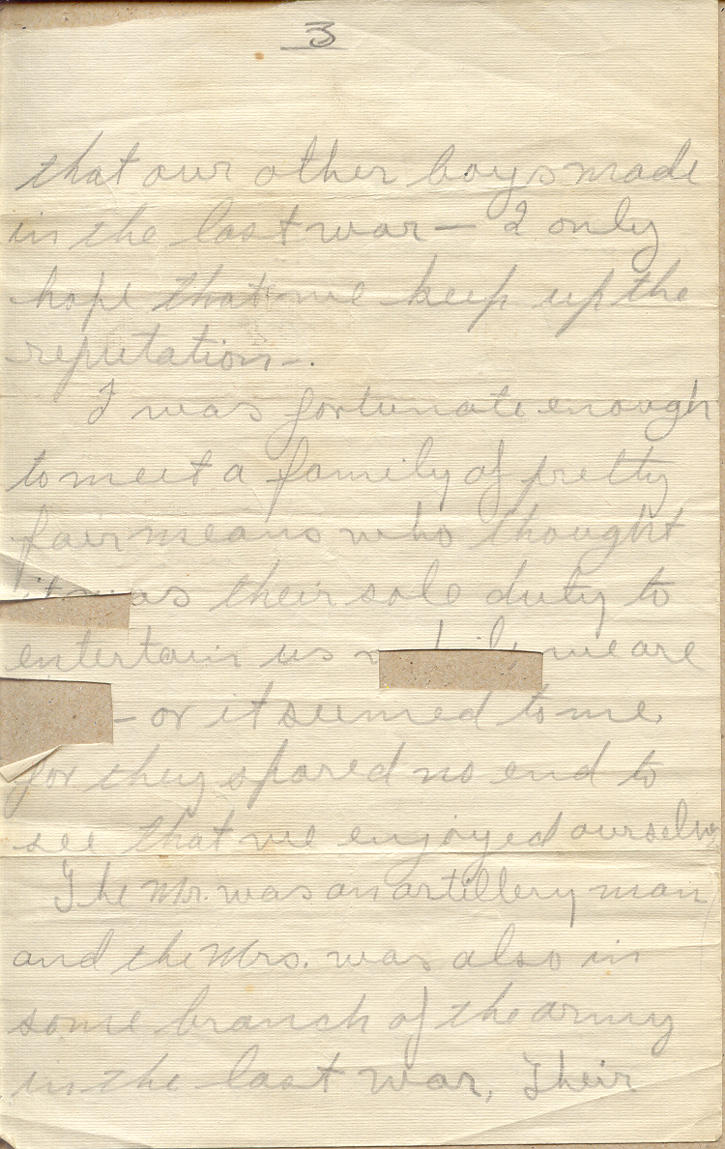 3
that our other boys made
in the last war — I only
hope that we keep up the
reputation —.
I was fortunate enough
to meet a family of pretty
fair means who thought
it was their sole duty to
entertain us while we are
— or it seemed to me
for they spared no end to
see that we enjoyed ourselves
The Mr. was an artillery man
and the Mrs. was also in
some branch of the army
in the last war. Their